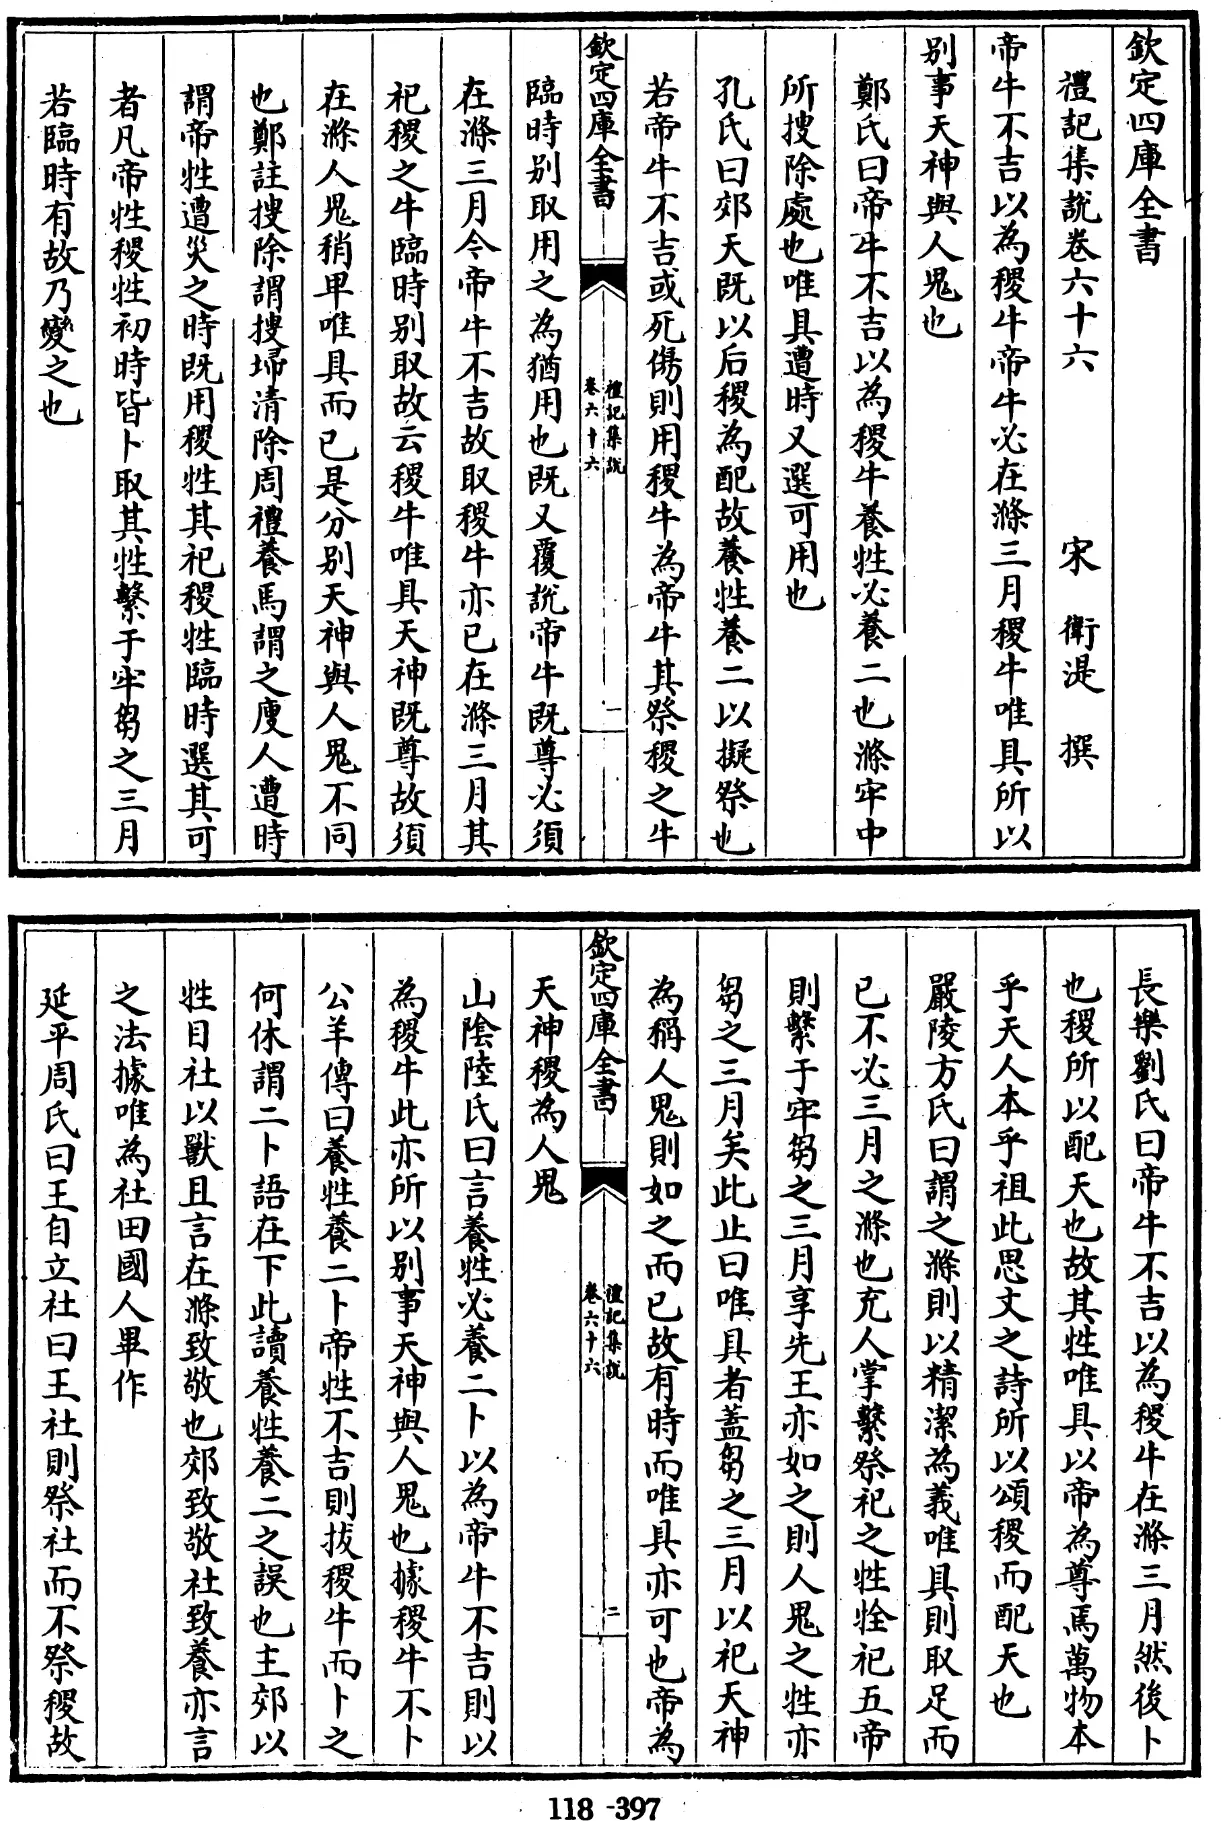 欽定四庫全書
禮記集說卷六十六　宋　衛湜　撰
帝牛不吉以為稷牛帝牛必在滌三月稷牛唯具所以
别事天神與人鬼也
鄭氏曰帝牛不吉以為稷牛養牲必養二也滌牢中
所搜除處也唯具遭時又選可用也
孔氏曰郊天既以后稷為配故養牲養二以擬祭也
若帝牛不吉或死傷則用稷牛為帝牛其祭稷之牛
欽定四庫全書
禮記集說
卷六十六
一
臨時别取用之為猶用也既又覆說帝牛既尊必須
在滌三月今帝牛不吉故取稷牛亦已在滌三月其
祀稷之牛臨時别取故云稷牛唯具天神既尊故須
在滌人鬼稍卑唯具而已是分别天神與人鬼不同
也鄭註搜除謂搜埽清除周禮養馬謂之廋人遭時
謂帝牲遭災之時既用稷牲其祀稷牲臨時選其可
者凡帝牲稷牲初時皆卜取其牲繫于牢芻之三月
若臨時有故乃變之也
長樂劉氏曰帝牛不吉以為稷牛在滌三月然後卜
也稷所以配天也故其牲唯具以帝為尊焉萬物本
乎天人本乎祖此思文之詩所以頌稷而配天也
嚴陵方氏曰謂之滌則以精潔為義唯具則取足而
已不必三月之滌也充人掌繫祭祀之牲牷祀五帝
則繫于牢芻之三月享先王亦如之則人鬼之牲亦
芻之三月矣此止曰唯具者蓋芻之三月以祀天神
為稱人鬼則如之而已故有時而唯具亦可也帝為
欽定四庫全書
禮記集說
卷六十六
二
天神稷為人鬼
山陰陸氏曰言養牲必養二卜以為帝牛不吉則以
為稷牛此亦所以别事天神與人鬼也據稷牛不卜
公羊傳曰養牲養二卜帝牲不吉則扳稷牛而卜之
何休謂二卜語在下此讀養牲養二之誤也主郊以
牲目社以獸且言在滌致敬也郊致敬社致養亦言
之法據唯為社田國人畢作
延平周氏曰王自立社曰王社則祭社而不祭稷故
118-397